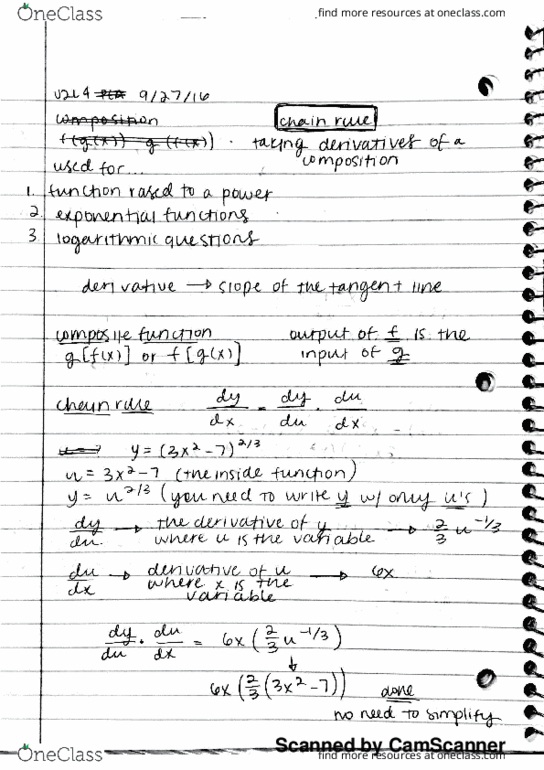 OneClass
find more resources at oneclass.com
U2L4 9/27/16
composition chain rule
f(g(x)) g(f(x)) · taking derivatives of a
composition
used for...
1. function rased to a power
2. exponential functions
3. logarithmic questions
derivative → slope of the tangent line
composite function output of f is the
g[f(x)] or f[g(x)] input of g
chain rule dy/dx = dy/du · du/dx
y = (3x²-7)^2/3
u = 3x²-7 (the inside function)
y = u^2/3 (you need to write y w/ only u's)
dy/du → the derivative of y
where u is the variable → 2/3 u^-1/3
du/dx → derivative of u
where x is the
variable → 6x
dy/du · du/dx = 6x(2/3 u^-1/3)
↓
6x(2/3(3x²-7)) done
no need to simplify
Scanned by CamScanner
OneClass
find more resources at oneclass.com